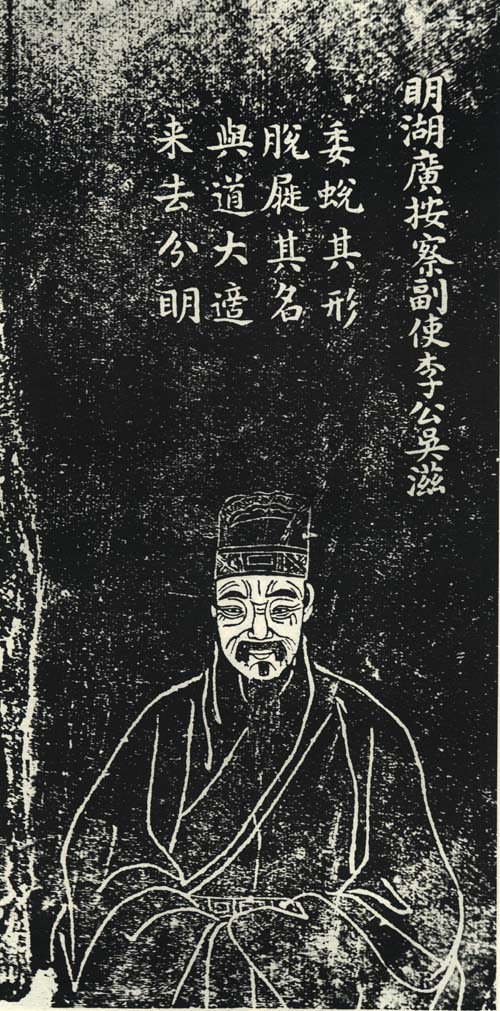 明湖廣按察副使李公吳滋
委蛻其形
脫屣其名
與道大適
来去分明